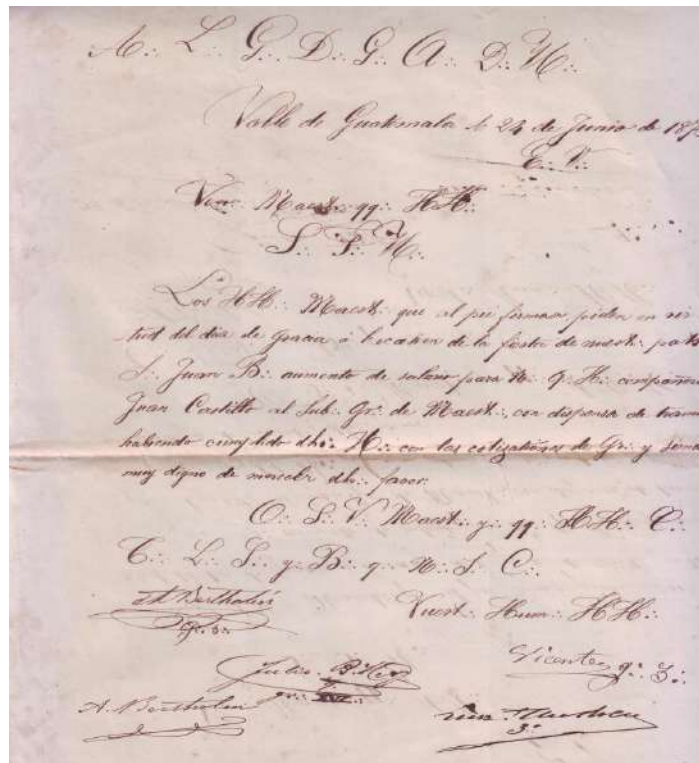 A∴ L∴ G∴ D∴ G∴ A∴ D∴ U∴
Valle de Guatemala á 24 de Junio de 187
E∴ V∴
Ven∴ Maest∴ qq∴ HH∴
S∴ F∴ U∴
Los HH∴ Maest∴ que al pié firman piden en vir
tud del dia de gracia ó hocacion de la fiesta de nuest∴ patr
S. Juan B∴ aumento de salario para N∴ q∴ H∴ compañero
Juan Castillo al Sub∴ Gr∴ de Maest∴, con dispensa de
habiendo cumplido dho∴ H∴ con las cotizaciones de Gr∴ y siendo
muy digno de merecer dho∴ favor.
O∴ S∴ V∴ Maest∴ y∴ qq∴ HH∴ C∴
T∴ L∴ S∴ y B∴ q∴ N∴ S∴ C∴
Vuest∴ Hum∴ HH∴
gr∴ 3∴
Julio
Vicente gr∴ 3∴
A. Bertholin
3∴